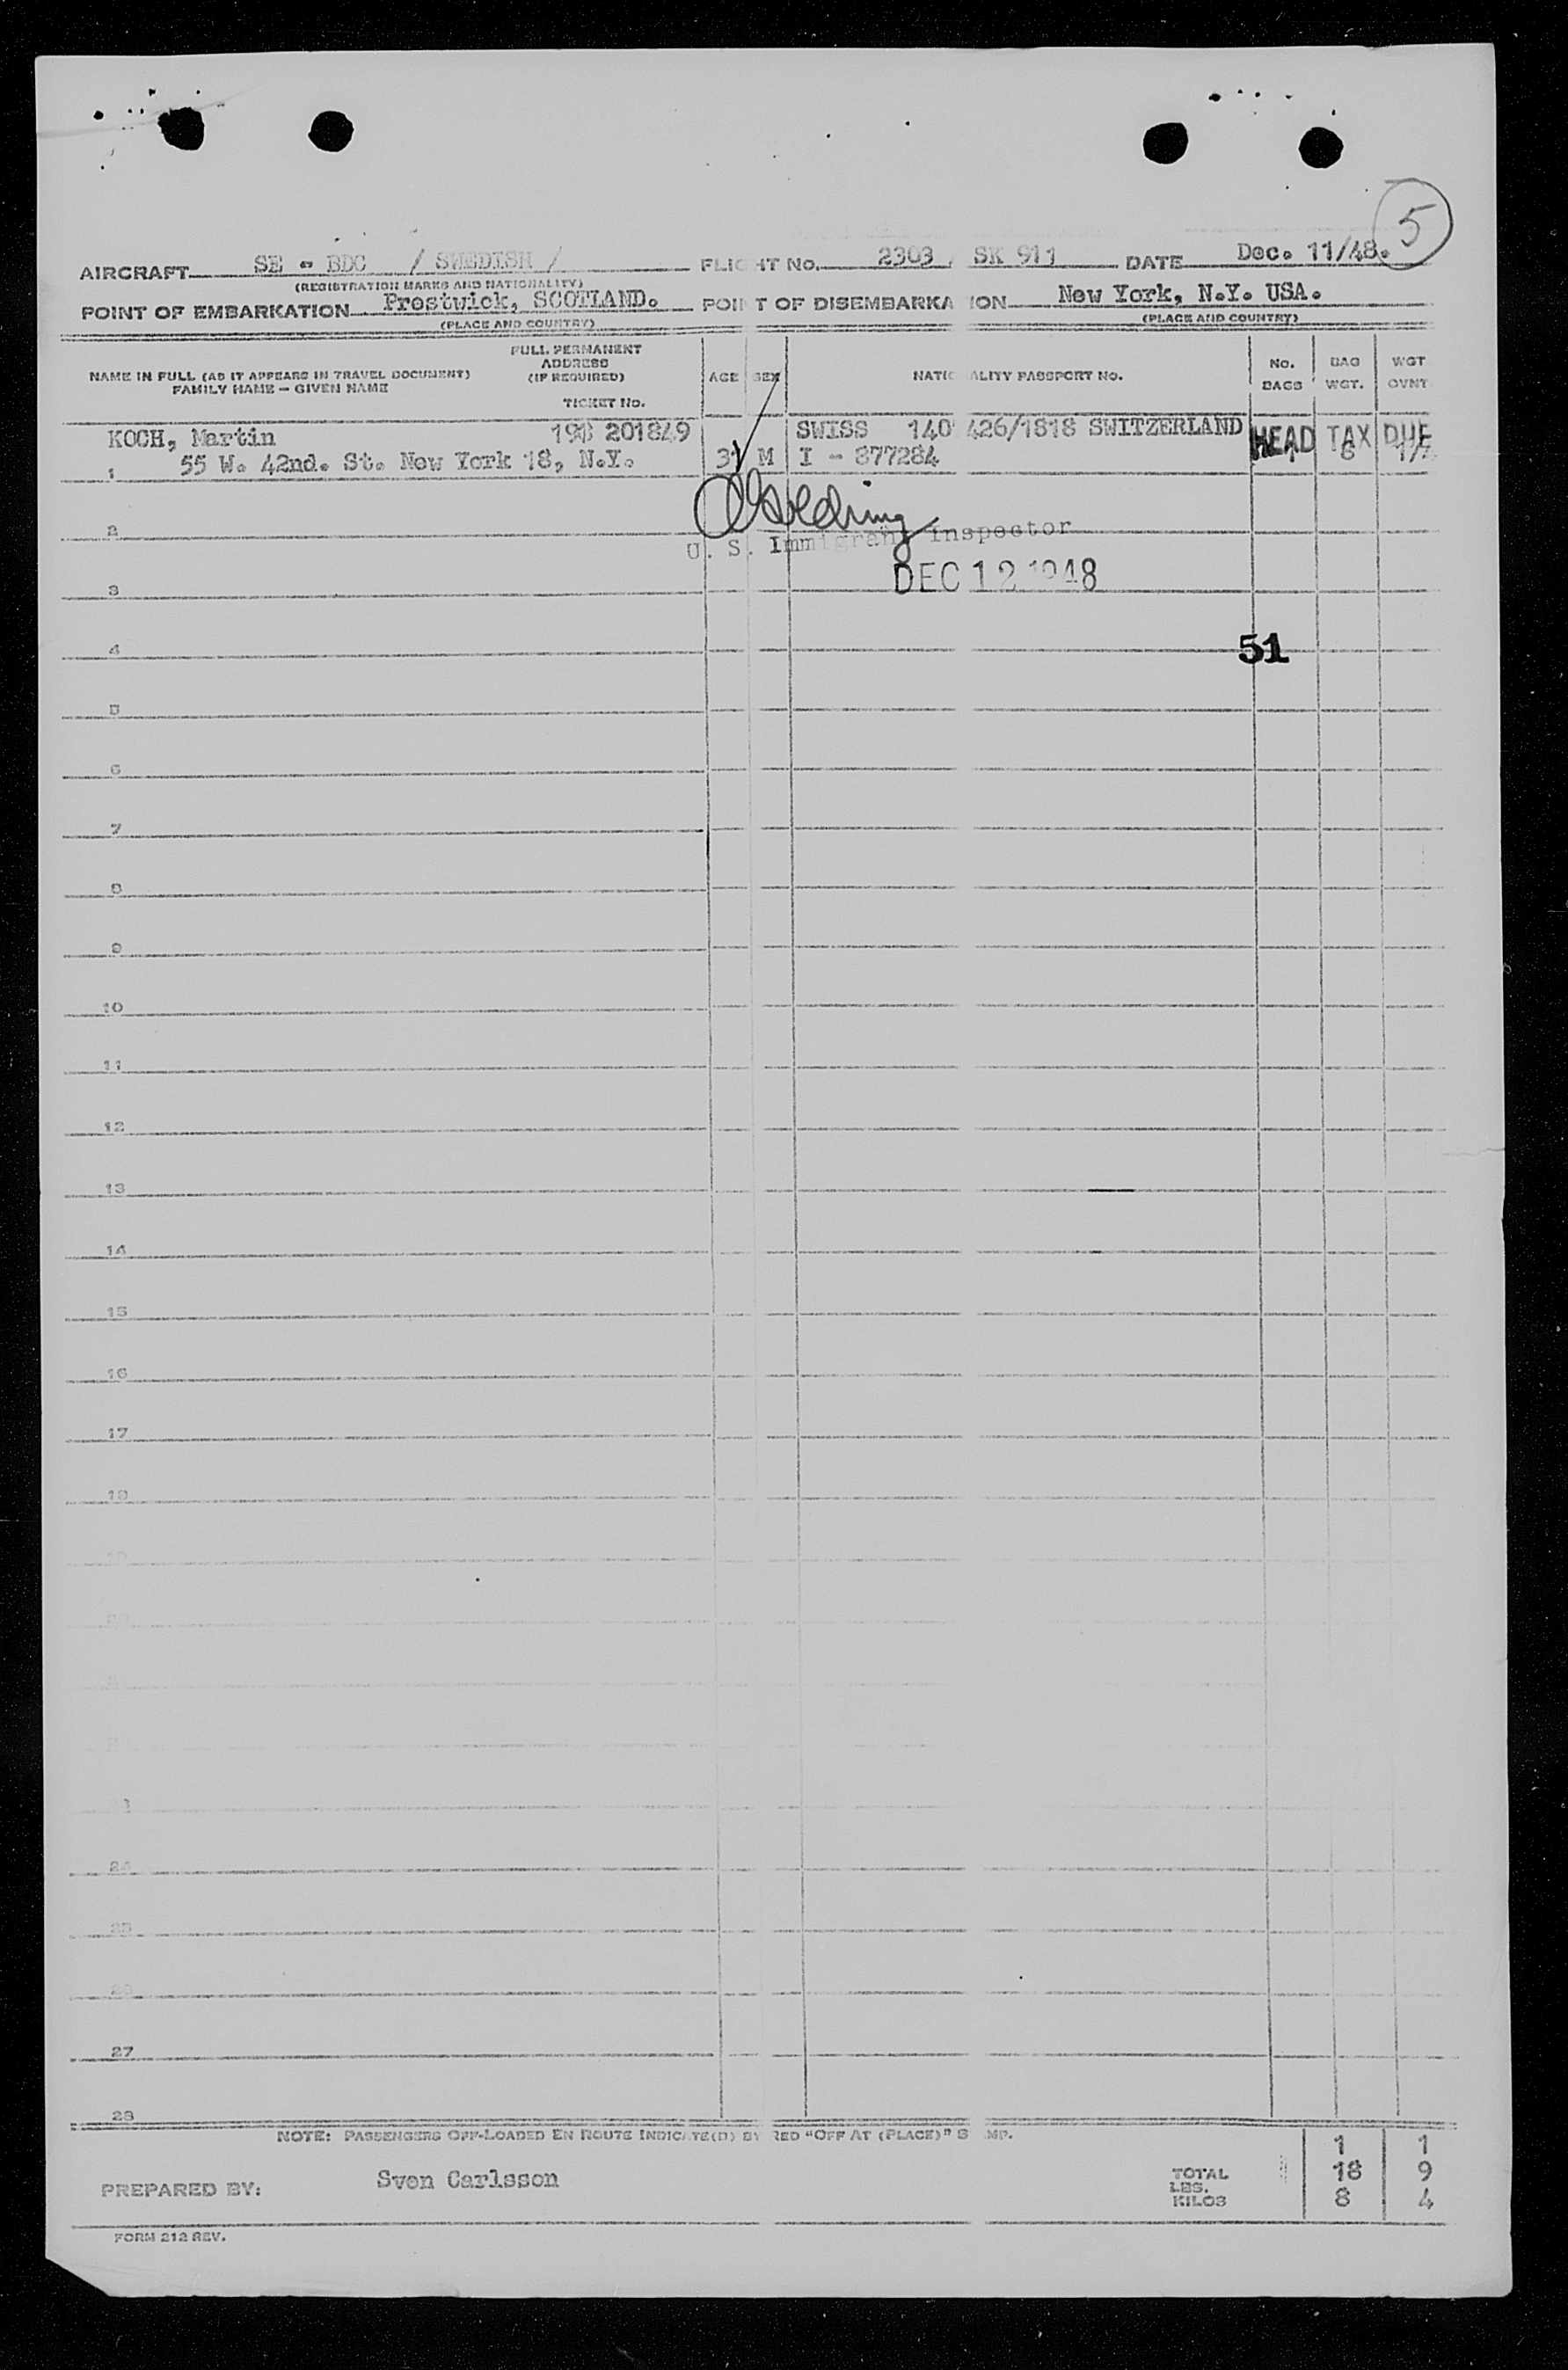 5
AIRCRAFT SE - BDC / SWEDISH / FLIGHT No. 2303 / SK 911 DATE Dec. 11/48.
(REGISTRATION MARKS AND NATIONALITY)
POINT OF EMBARKATION Prestwick, SCOTLAND. POINT OF DISEMBARKA ION New York, N.Y. USA.
(PLACE AND COUNTRY) (PLACE AND COUNTRY)
NAME IN FULL (AS IT APPEARS IN TRAVEL DOCUMENT)
FAMILY NAME — GIVEN NAME
FULL PERMANENT
ADDRESS
(IF REQUIRED)
TICKET No.
AGE SEX NATIC ALITY PASSPORT NO. No. BAGS BAG WGT. WGT OVNT
KOCH, Martin 201849 SWISS 140 426/1818 SWITZERLAND HEAD TAX DUE
1 55 W. 42nd. St. New York 18, N.Y. M I - 877284 8
2
U. S. Immigrant Inspector
3 DEC 12 1948
4 51
5
6
7
8
9
10
11
12
13
14
15
16
17
18
24
25
26
27
28
NOTE: PASSENGERS OFF-LOADED EN ROUTE INDICATE(D) BY RED "OFF AT (PLACE)" S MP.
1 1
PREPARED BY: Sven Carlsson TOTAL
LBS. 18 9
KILOS 8 4
FORM 212 REV.